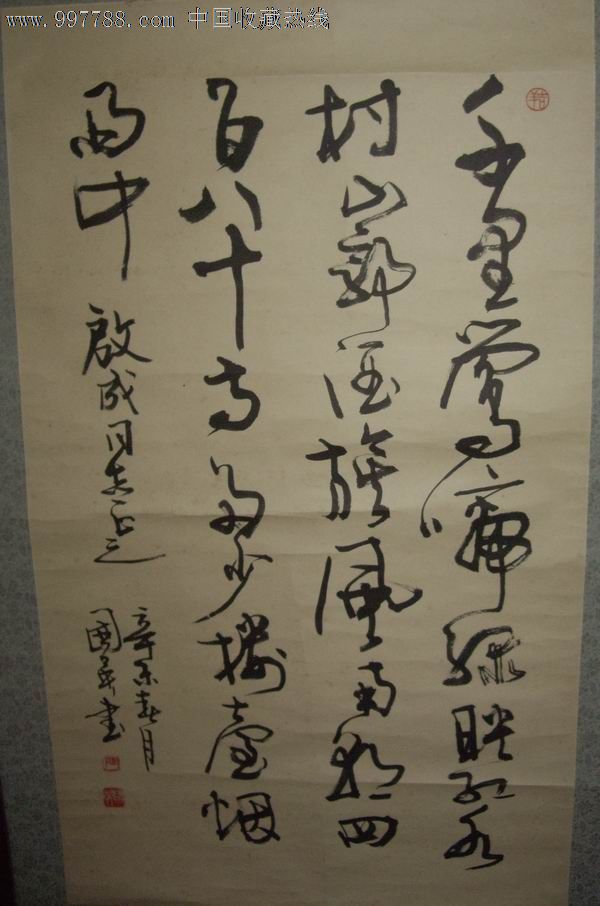 www.997788.com 中国收藏热线
千里鶯啼绿映红水
村山郭酒旗風南朝四
百八十寺多少楼臺烟
雨中 啟成同志正之
辛未春月
國 书